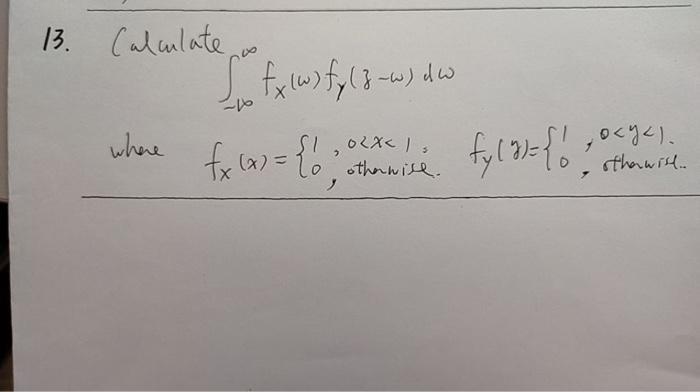 13. Calculate
∫_{-∞}^{∞} f_x(ω) f_y(z-ω) dω
where f_x(x) = {1, 0<x<1, 0, otherwise. f_y(y) = {1, 0<y<1. 0, otherwise.